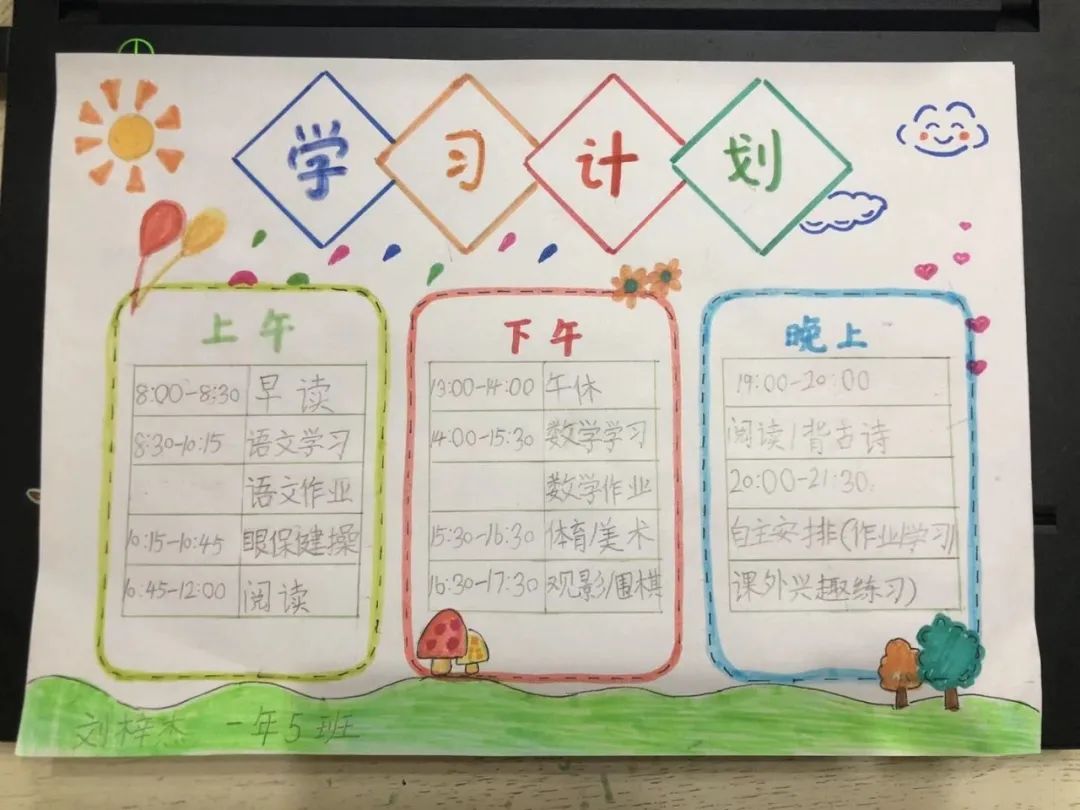 学习计划
上午
8:00-8:30 早读
8:30-10:15 语文学习
语文作业
10:15-10:45 眼保健操
10:45-12:00 阅读
下午
13:00-14:00 午休
14:00-15:30 数学学习
数学作业
15:30-16:30 体育/美术
16:30-17:30 观影/围棋
晚上
19:00-20:00
阅读/背古诗
20:00-21:30
自主安排(作业/学习/
课外兴趣练习)
刘梓杰 一年5班